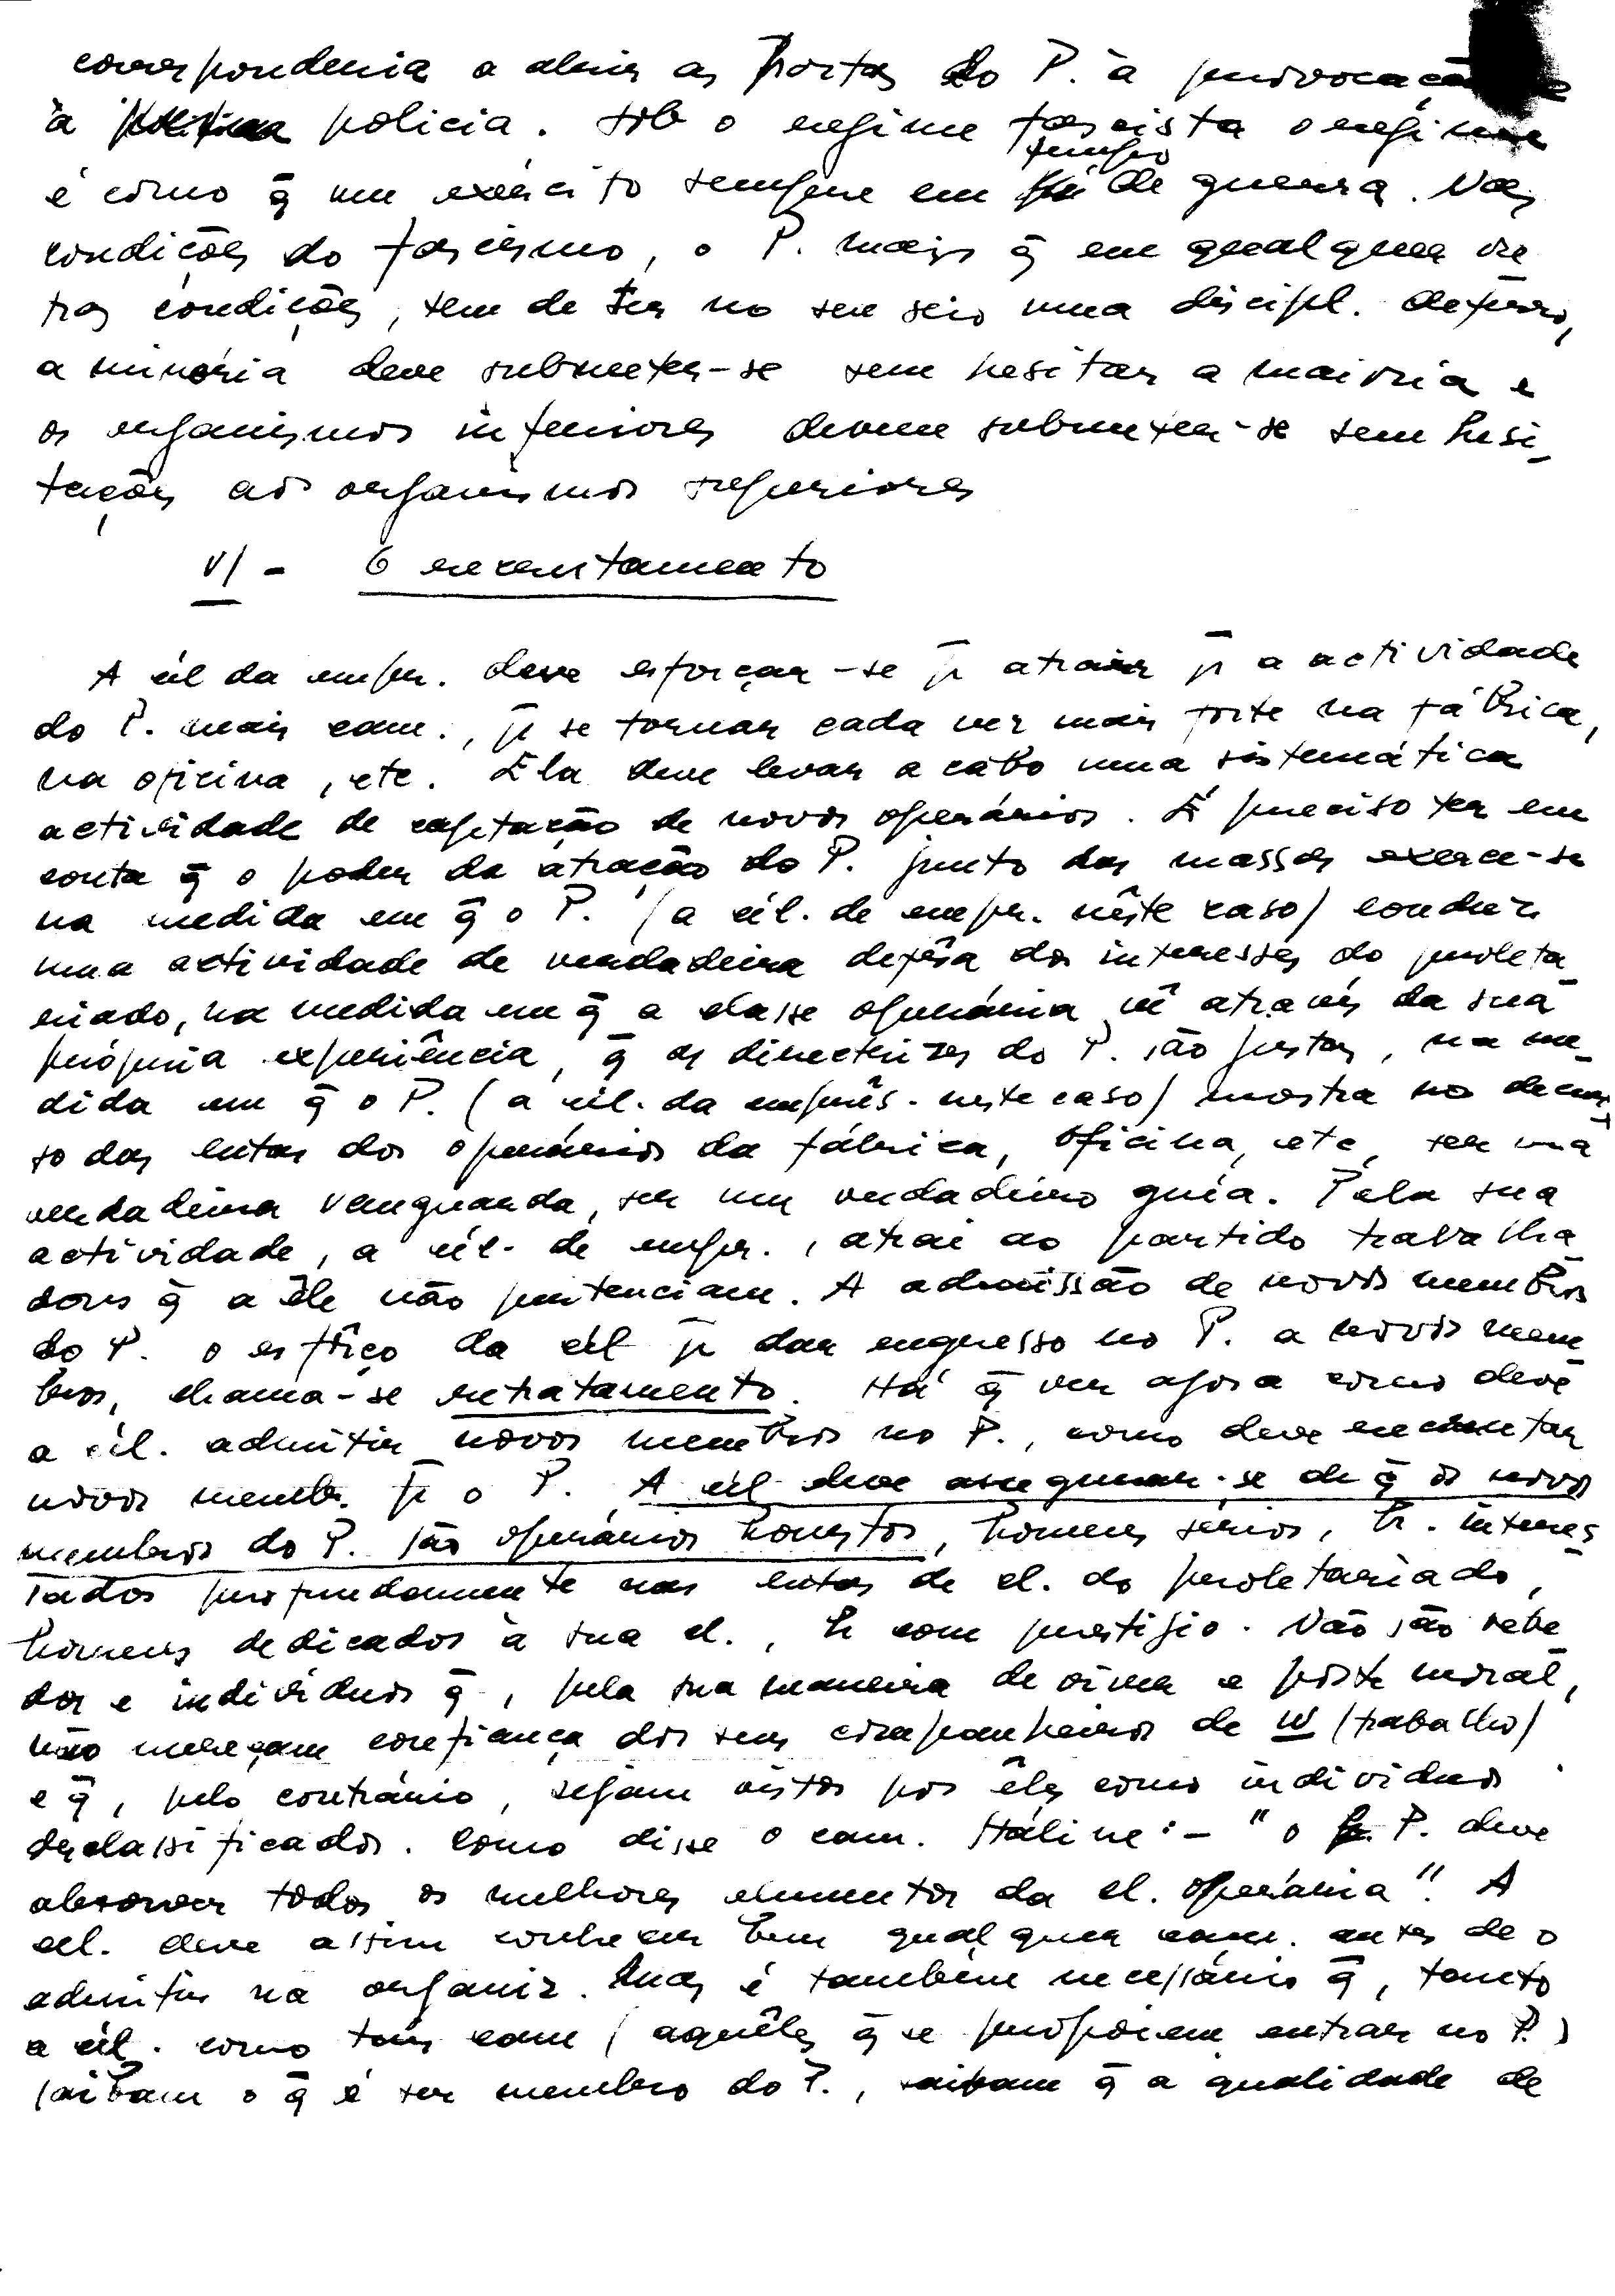 corresponderia a abrir as portas do P. à provocação
à policia. Sob o regime fascista o regime
é como q̄ um exército sempre em tempo de guerra. Nas
condições do fascismo, o P. mais q̄ em qualquer ou
tras condições, tem de ter no seu seio uma discipl. deferro,
a minoria deve submeter-se sem hesitar a maioria e
os organismos inferiores devem submeter-se sem hesi_
tações aos organismos superiores
VI - O recrutamento
A cél da empr. deve esforçar-se p̄ atrair p̄ a actividade
do P. mais cam., p̄ se tornar cada vez mais forte na fábrica,
na oficina, etc. Ela deve levar a cabo uma sistemática
actividade de captação de novos operários. É preciso ter em
conta q̄ o poder de atração do P. junto das massas exerce-se
na medida em q̄ o P. (a cél. de empr. nêste caso) conduz
uma actividade de verdadeira defêsa dos interesses do proleta_
riado, na medida em q̄ a classe operária vê através da sua
própria experiência, q̄ as directrizes do P. são justas, na me_
dida em q̄ o P. (a cél. da emprês. neste caso) mostra no decur_
so das lutas dos operários da fábrica, oficina, etc, ser uma
verdadeira vanguarda, ser um verdadeiro guia. Pela sua
actividade, a cél. de empr., atrai ao partido trabalha_
dores q̄ a êle não pertenciam. A admissão de novos membros
do P. o esfôrço da cél p̄ dar engresso no P. a novos mem
bros, chama-se recrutamento. Há q̄ ver agora como deve
a cél. admitir novos membros no P., como deve recrutar
novos memb. p̄ o P. A cél deve assegurar-se de q̄ os novos
membros do P. são operários honestos, homens sérios, h. interes_
sados profundamente nas lutas de cl. do proletariado,
homens dedicados à sua cl., h com prestigio. Não são bebe_
dos e individuos q̄, pela sua maneira de viver e porte moral,
não mereçam confiança dos seus companheiros de W (trabalho)
e q̄, pelo contrário, sejam vistos por êles como individuos
desclassificados. Como disse o cam. Stáline: - "o P. deve
absorver todos os melhores elementos da cl. operária". A
cél. deve assim conhecer bem qualquer cam. antes de o
admitir na organiz. Mas é também necessário q̄, tanto
a cél. como tais cam (aquêles q̄ se proporem entrar no P.)
saibam o q̄ é ser membro do P., saibam q̄ a qualidade de